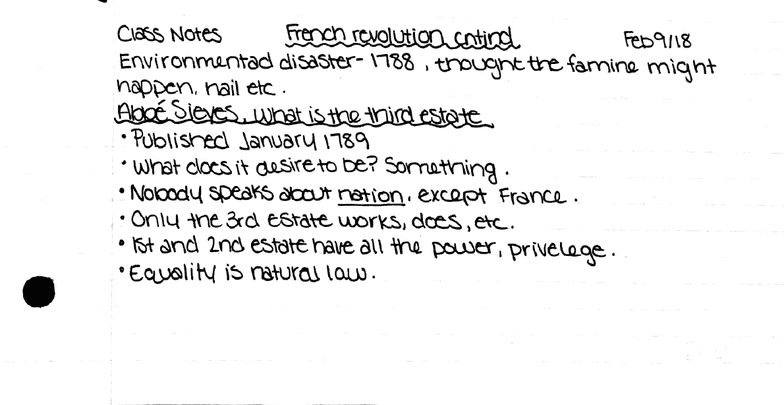 Class Notes French revolution cntind Feb 9/18
Environmentad disaster- 1788, thought the famine might
happen, hail etc.
Abbé Sieyes, what is the third estate
• Published January 1789
• What does it desire to be? Something.
• Nobody speaks about nation, except France.
• Only the 3rd estate works, does, etc.
• 1st and 2nd estate have all the power, privelege.
• Equality is natural law.